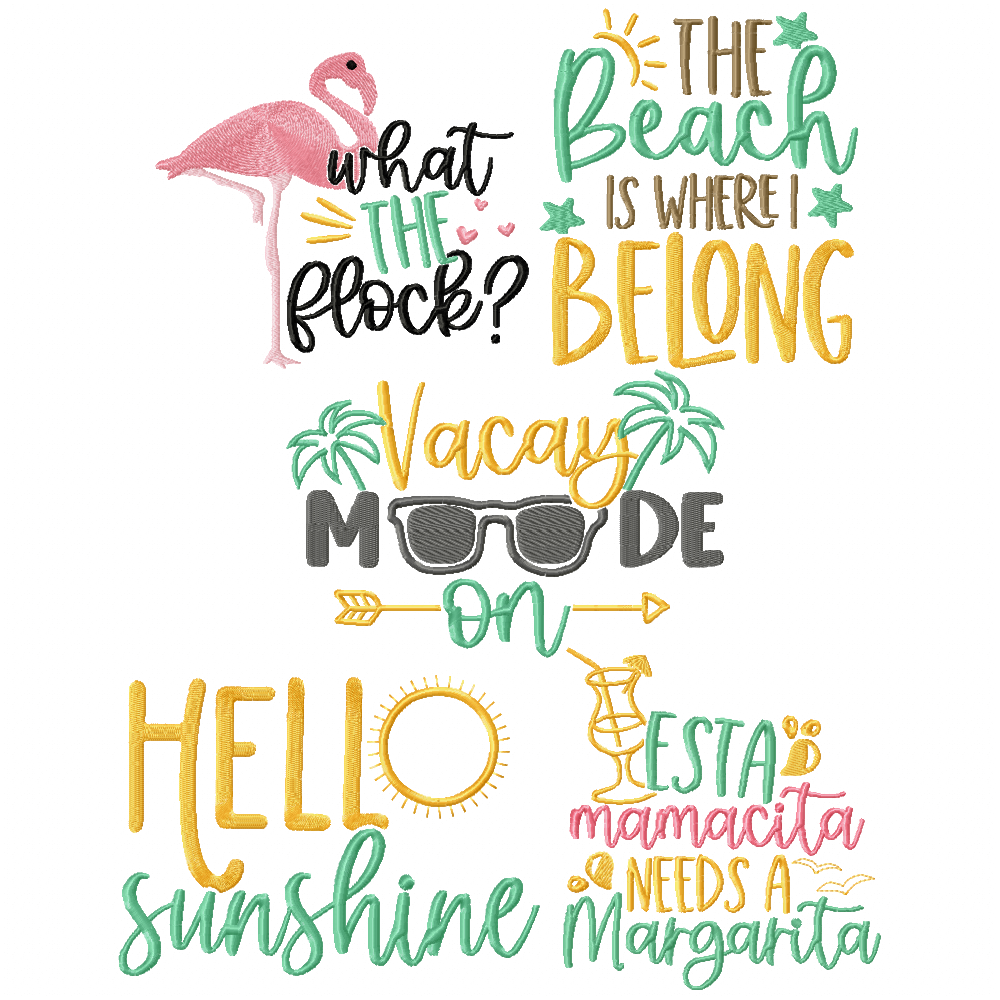 what
THE
flock?
THE
Beach
IS WHERE I
BELONG
Vacay
MDE
on
HELL
sunshine
ESTA
mamacita
NEEDS A
Margarita